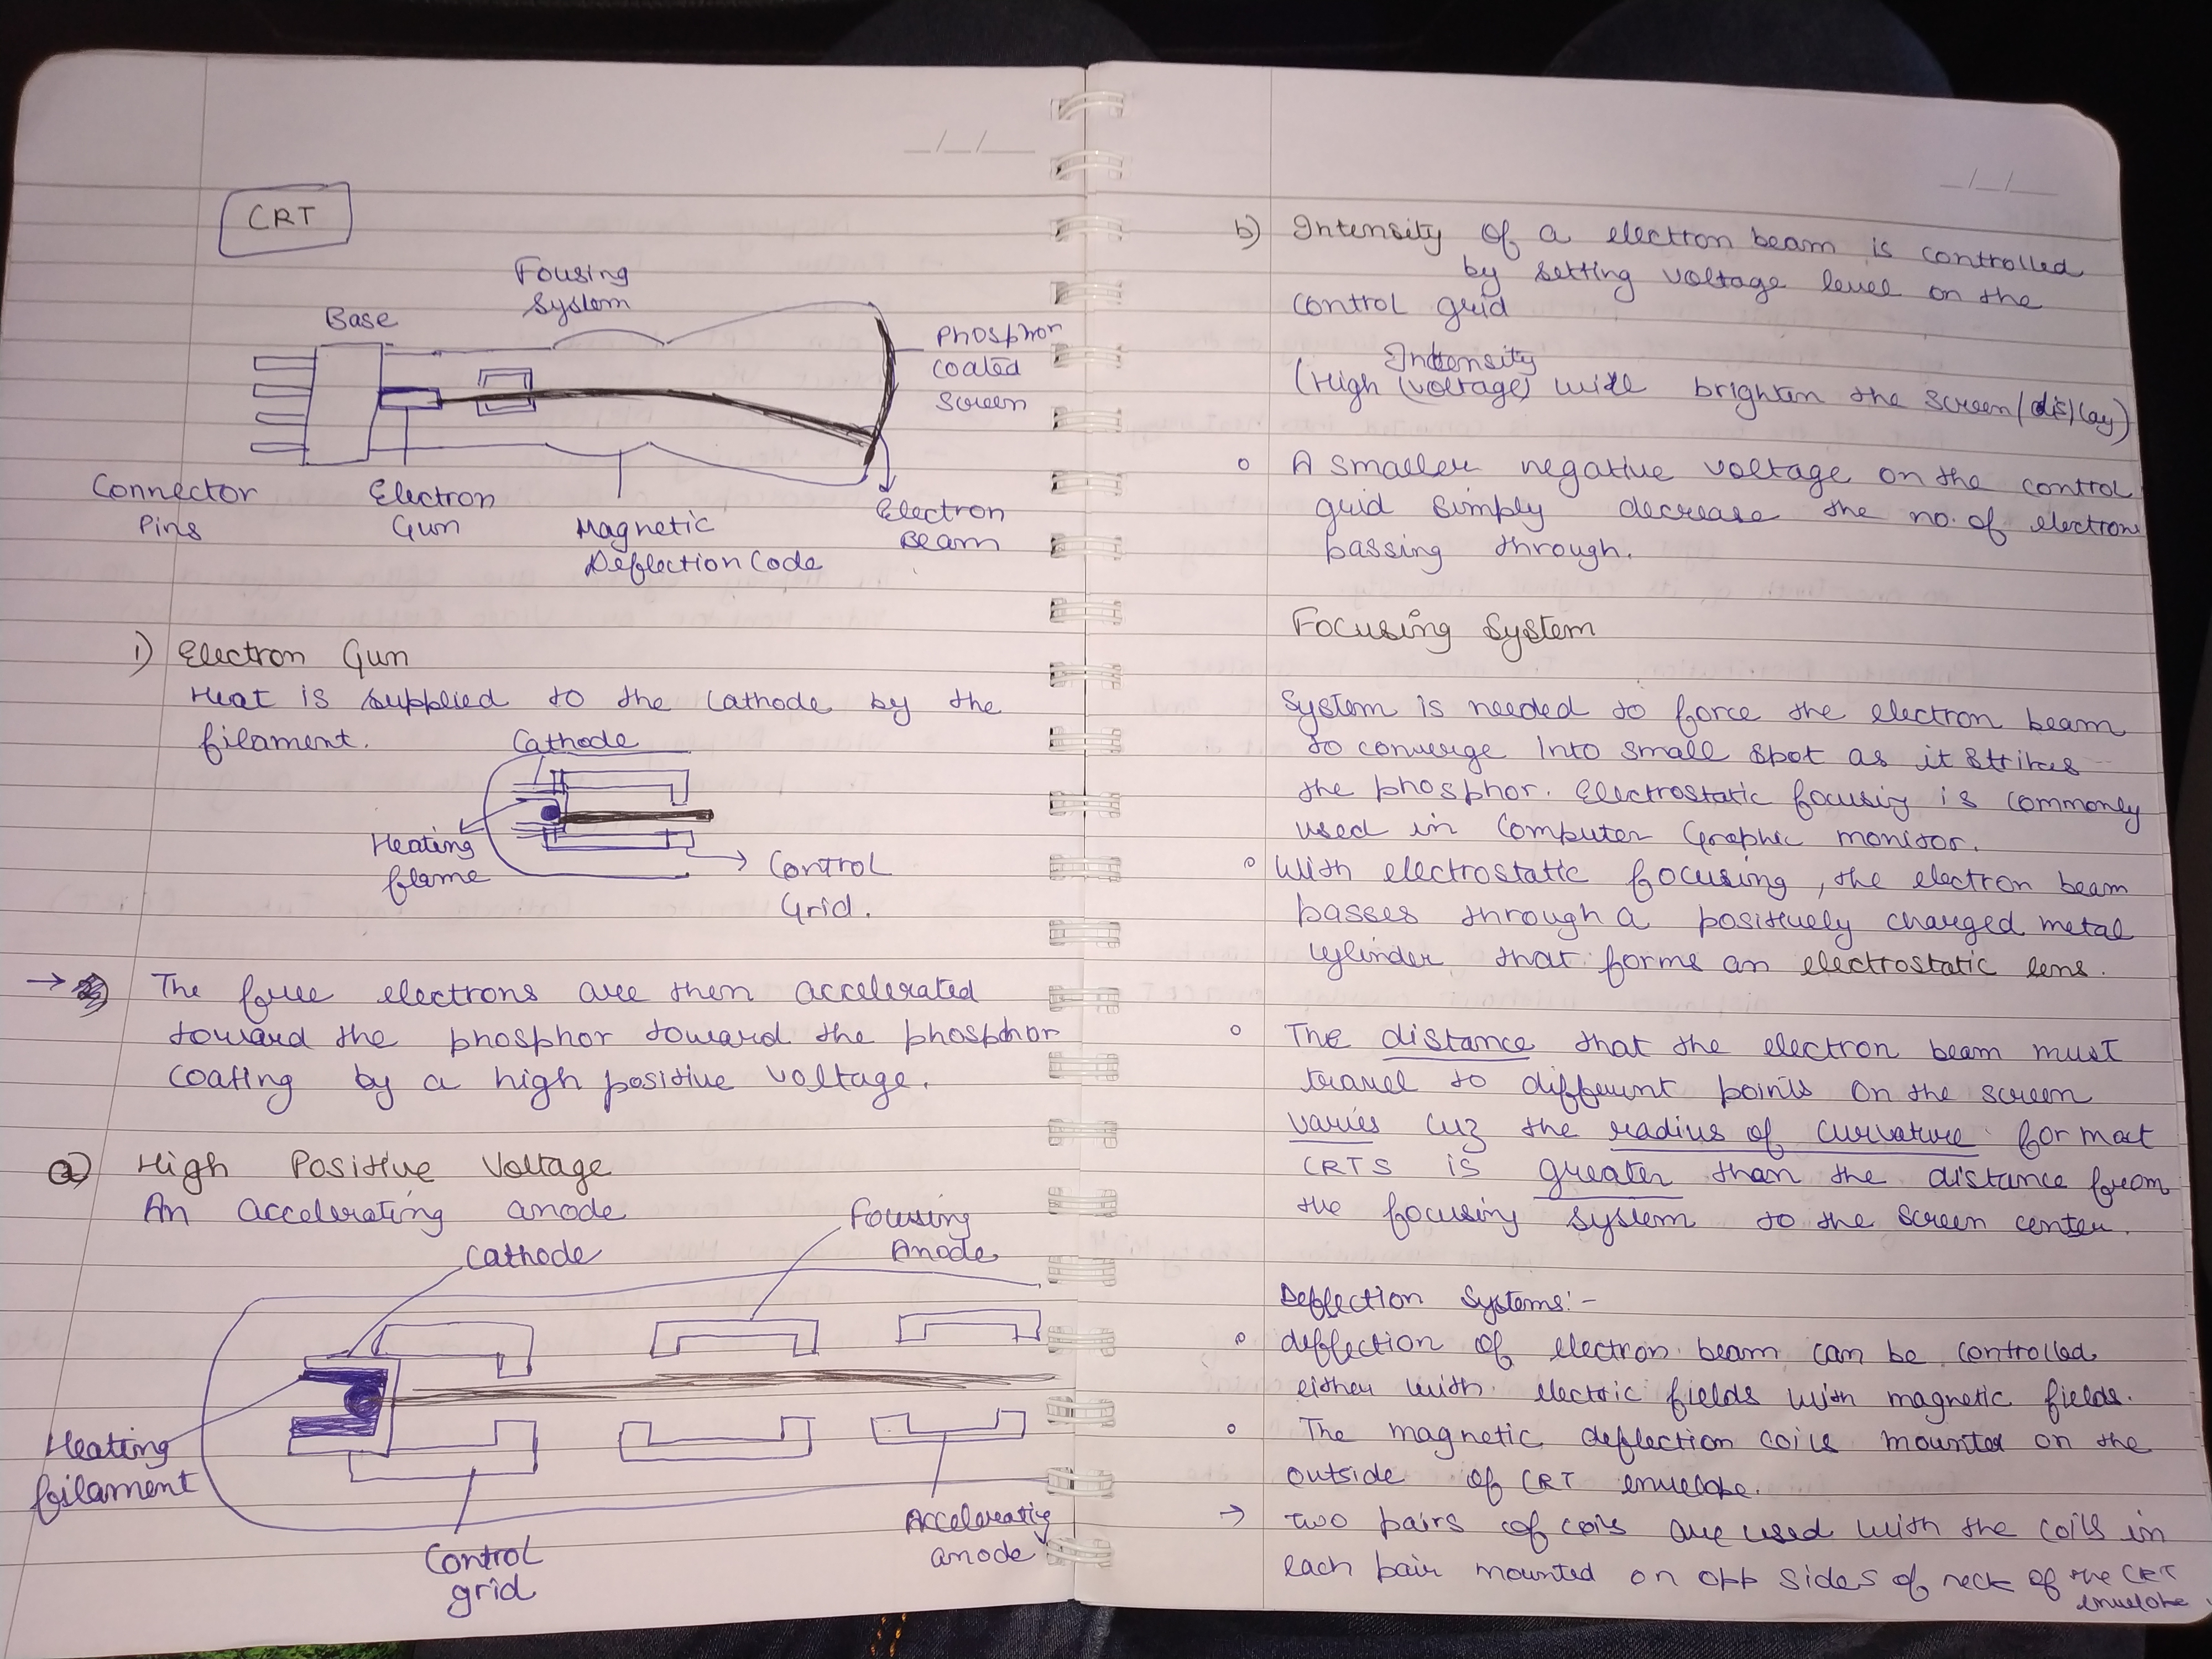 CRT
Fousing
System
Base
Phosphor
coated
screen
Connector
Pins
Electron
Gun
Magnetic
Deflection Code
Electron
Beam
1) Electron Gun
Heat is supplied to the Cathode by the
filament.
Cathode
Heating
flame
Control
Grid.
→ The free electrons are then accelerated
toward the phosphor toward the phosphor
coating by a high positive voltage.
a) High Positive Voltage
An accelerating anode
Cathode
Focusing
Anode
Heating
filament
Control
grid
Accelerating
anode
_/_/_
b) Intensity of a electron beam is controlled
by setting voltage level on the
control grid
Intensity
(High (voltage) will brighten the screen/display)
o A smaller negative voltage on the control
grid simply decrease the no. of electron
passing through.
Focusing System
System is needed to force the electron beam
to converge Into small spot as it strikes
the phosphor. Electrostatic focusing is commonly
used in Computer Graphic monitor.
o With electrostatic focusing, the electron beam
passes through a positively charged metal
cylinder that forms an electrostatic lens.
o The distance that the electron beam must
travel to different points on the screen
varies cuz the radius of curvature for most
CRTS is greater than the distance from
the focusing system to the screen center.
Deflection Systems:-
o deflection of electron beam can be controlled
either with electric fields with magnetic fields.
o The magnetic deflection coils mounted on the
outside of CRT envelope.
→ Two pairs of coils are used with the coils in
each pair mounted on opp sides of neck of the CRT
envelope